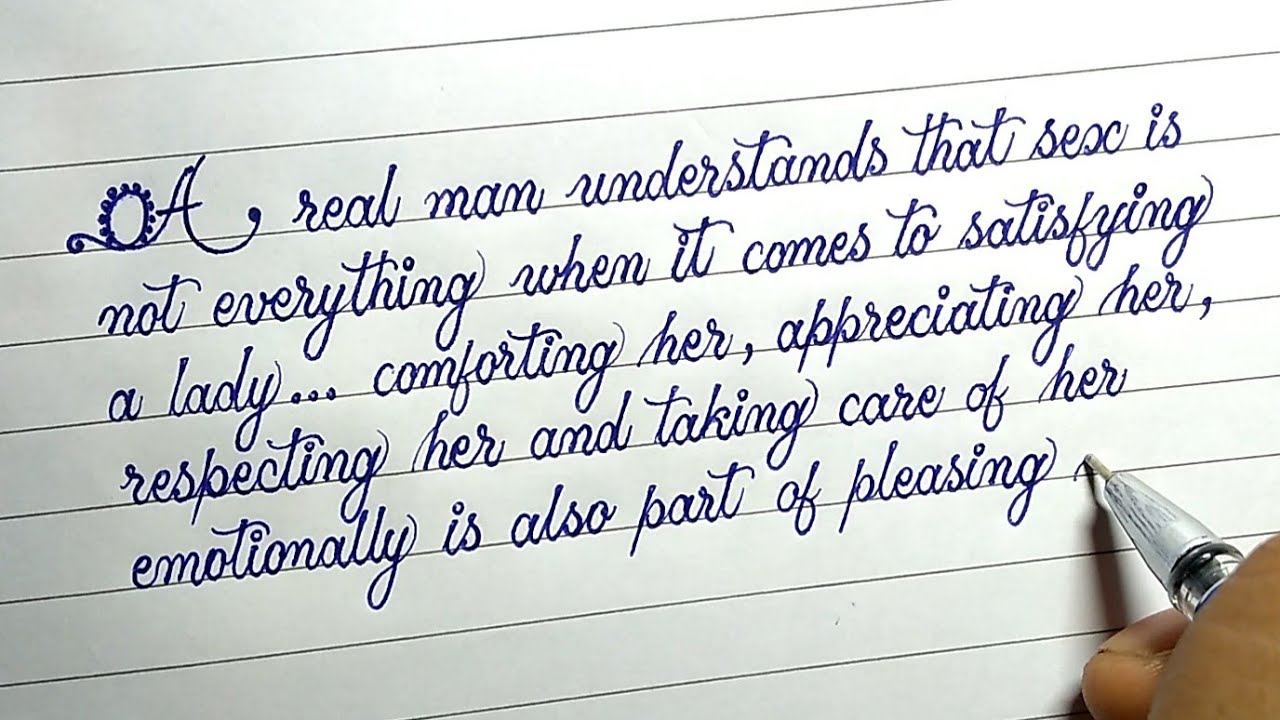 A real man understands that sex is
not everything when it comes to satisfying
a lady... comforting her, appreciating her,
respecting her and taking care of her
emotionally is also part of pleasing